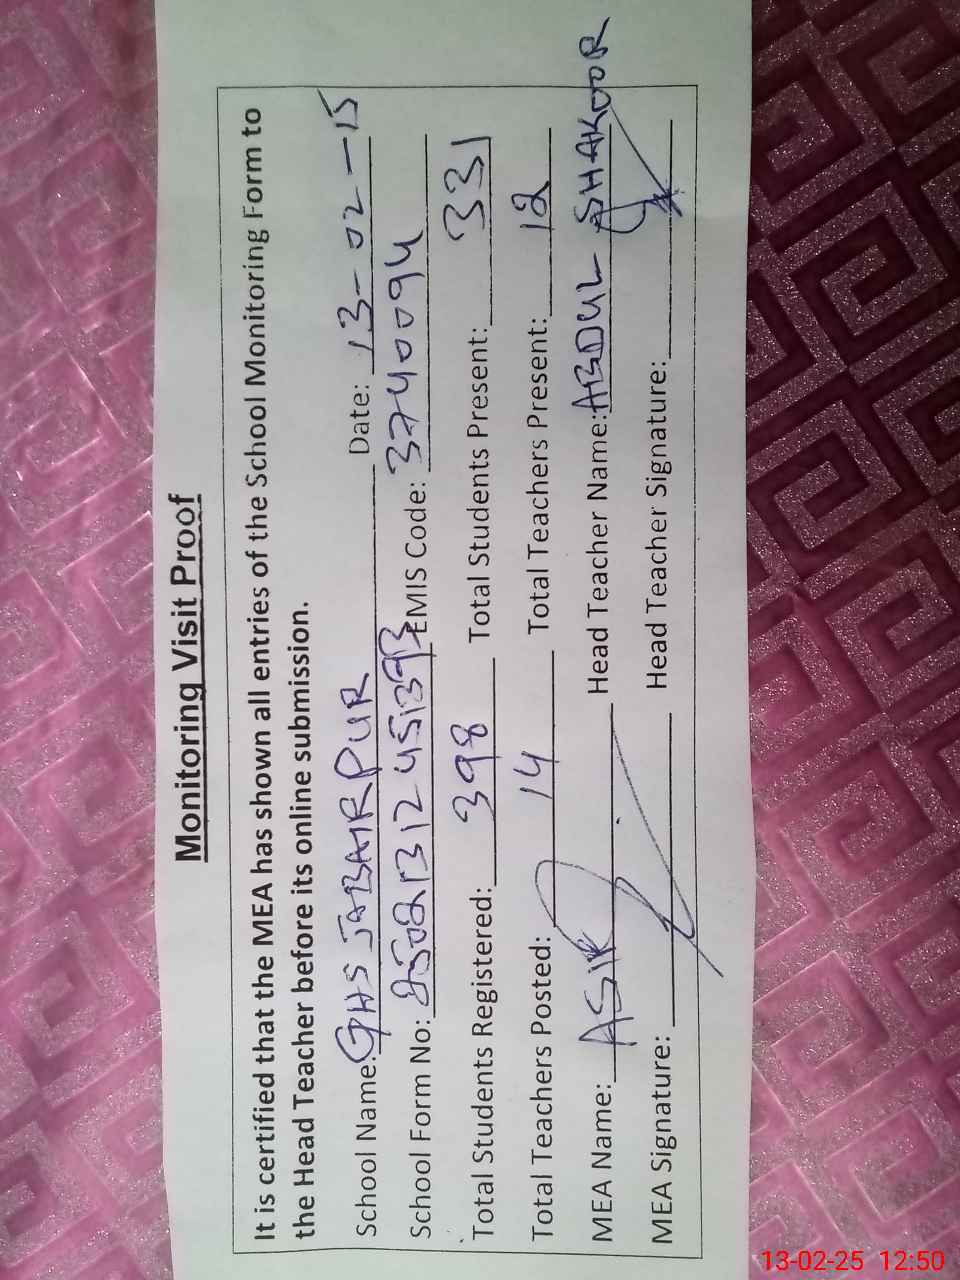 Monitoring Visit Proof
It is certified that the MEA has shown all entries of the School Monitoring Form to
the Head Teacher before its online submission.
School Name: GHS JABAIRPUR Date: 13-02-15
School Form No: EMIS Code: 3740094
Total Students Registered: 398 Total Students Present: 331
Total Teachers Posted: 14 Total Teachers Present: 12
MEA Name: Head Teacher Name: ABDUL SHAKOOR
MEA Signature: Head Teacher Signature:
13-02-25 12:50